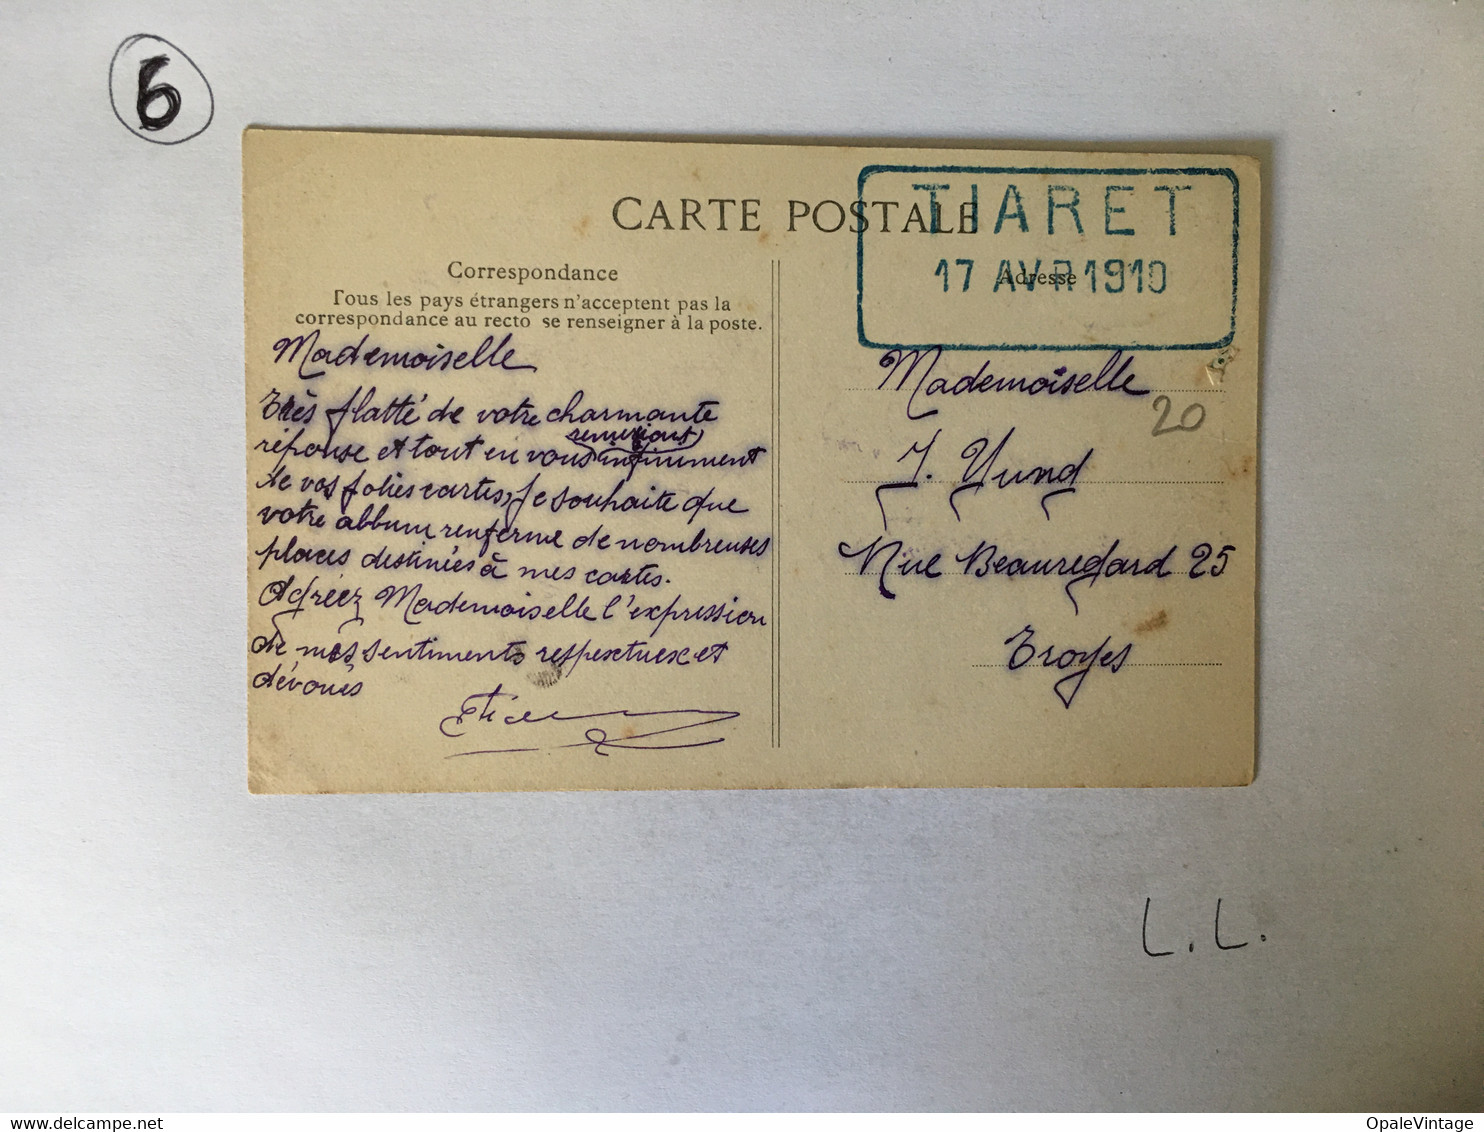 6
CARTE POSTALE
TIARET
17 AVR 1910
Correspondance
Tous les pays étrangers n'acceptent pas la
correspondance au recto se renseigner à la poste.
Mademoiselle
Très flatté de votre charmante
remerciant
réponse et tout en vous infiniment
de vos jolies cartes, je souhaite que
votre album renferme de nombreuses
places destinées à mes cartes.
Agréez Mademoiselle l'expression
de mes sentiments respectueux et
dévoués
Adresse
Mademoiselle
20
J. Yund
Rue Beauregard 25
Troyes
L.L.
www.delcampe.net
OpaleVintage